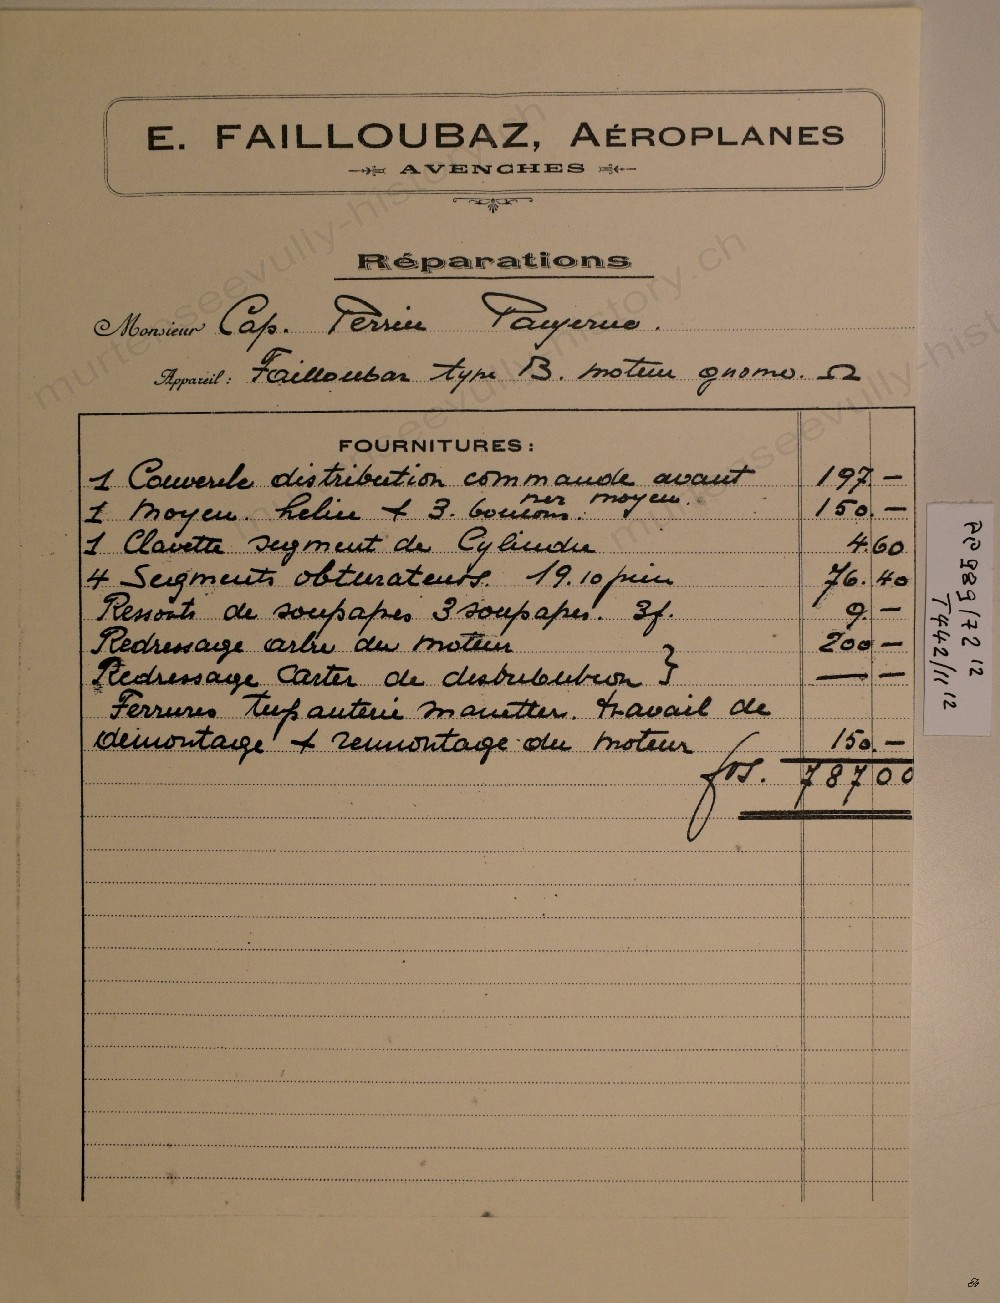 E. FAILLOUBAZ, AÉROPLANES
AVENCHES
Réparations
Monsieur Cap. Perrin Payerne.
Appareil: Failloubaz type B. moteur gnome. Ω
FOURNITURES:
1 Couvercle distribution commande avant 197.—
1 moyeu. helice + 3. boulons. moyeu. 150.—
1 Clavette segment de Cylindre 4.60
4 Segments obturateurs. 19.10 pièce 76.40
Ressorts de soupapes 3 soupapes. 3f. 9.—
Redressage arbre du moteur 200—
Redressage Carter de distribution } — —
Ferrures manettes. travail de
démontage + remontage du moteur 150.—
frs. 787 00
murtenseevully-history.ch
murtenseevully-history.ch
murtenseevully-history